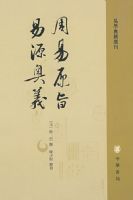 易學典籍選刊
周易原旨
易源奧義
中華書局